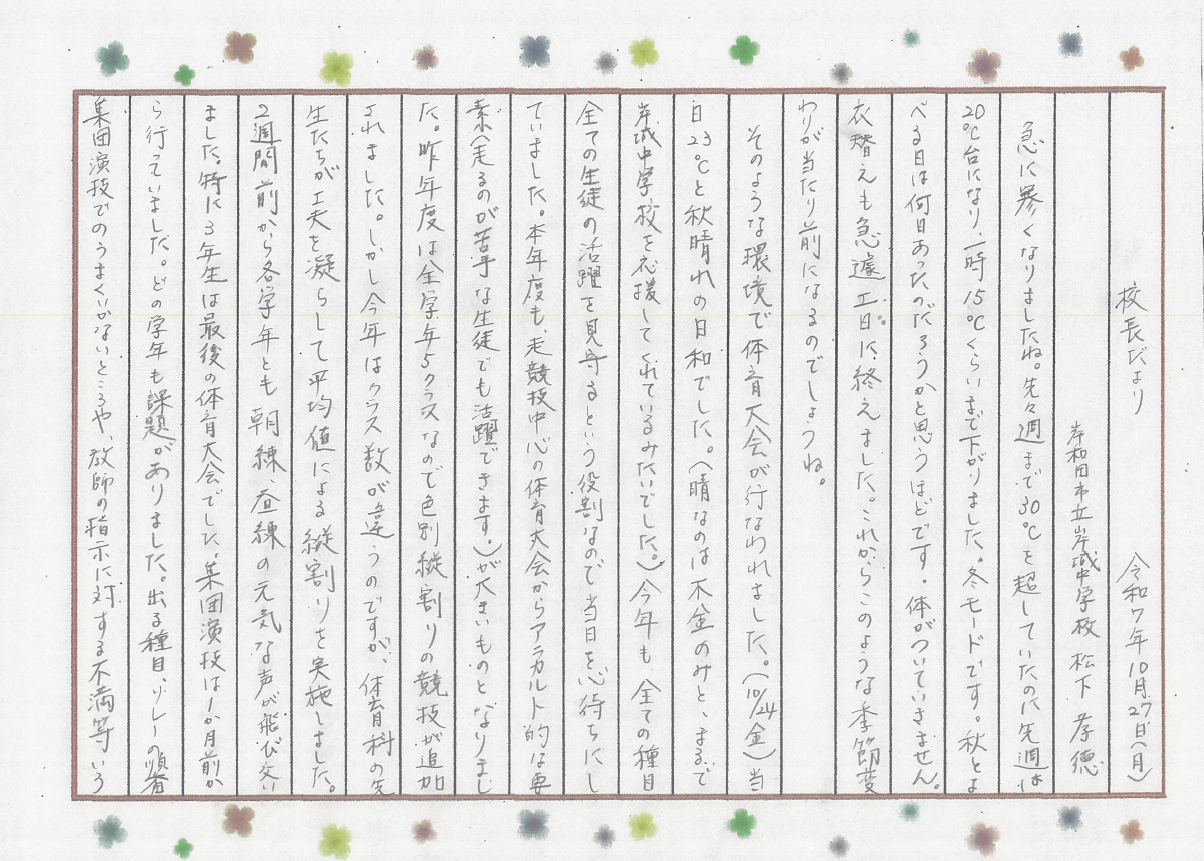 校長だより　令和7年10月27日(月)
岸和田市立岸城中学校　松下　孝徳
急に寒くなりましたね。先々週まで30℃を超していたのに先週は
20℃台になり、一時15℃くらいまで下がりました。冬モードです。秋とよ
べる日は何日あったのだろうかと思うほどです。体がついていきません。
衣替えも急遽工日に終えました。これからこのような季節変
わりが当たり前になるのでしょうね。
そのような環境で体育大会が行なわれました。(10/24金)当
日23℃と秋晴れの日和でした。(晴なのは木金のみと、まるで
岸城中学校を応援してくれているみたいでした。)今年も、全ての種目
全ての生徒の活躍を見守るという役割なので当日を心待ちにし
ていました。本年度も、走競技中心の体育大会からアラカルト的な要
素(走るのが苦手な生徒でも活躍できます。)が大きいものとなりまし
た。昨年度は全学年5クラスなので色別縦割りの競技が追加
されました。しかし今年はクラス数が違うのですが、体育科の先
生たちが工夫を凝らして平均値による縦割りを実施しました。
2週間前から各学年とも朝練、昼練の元気な声が飛び交い
ました。特に3年生は最後の体育大会でした。集団演技は1か月前か
ら行っていました。どの学年も課題がありました。出る種目、リレーの順番
集団演技でのうまくいかないところや、教師の指示に対する不満等いろ